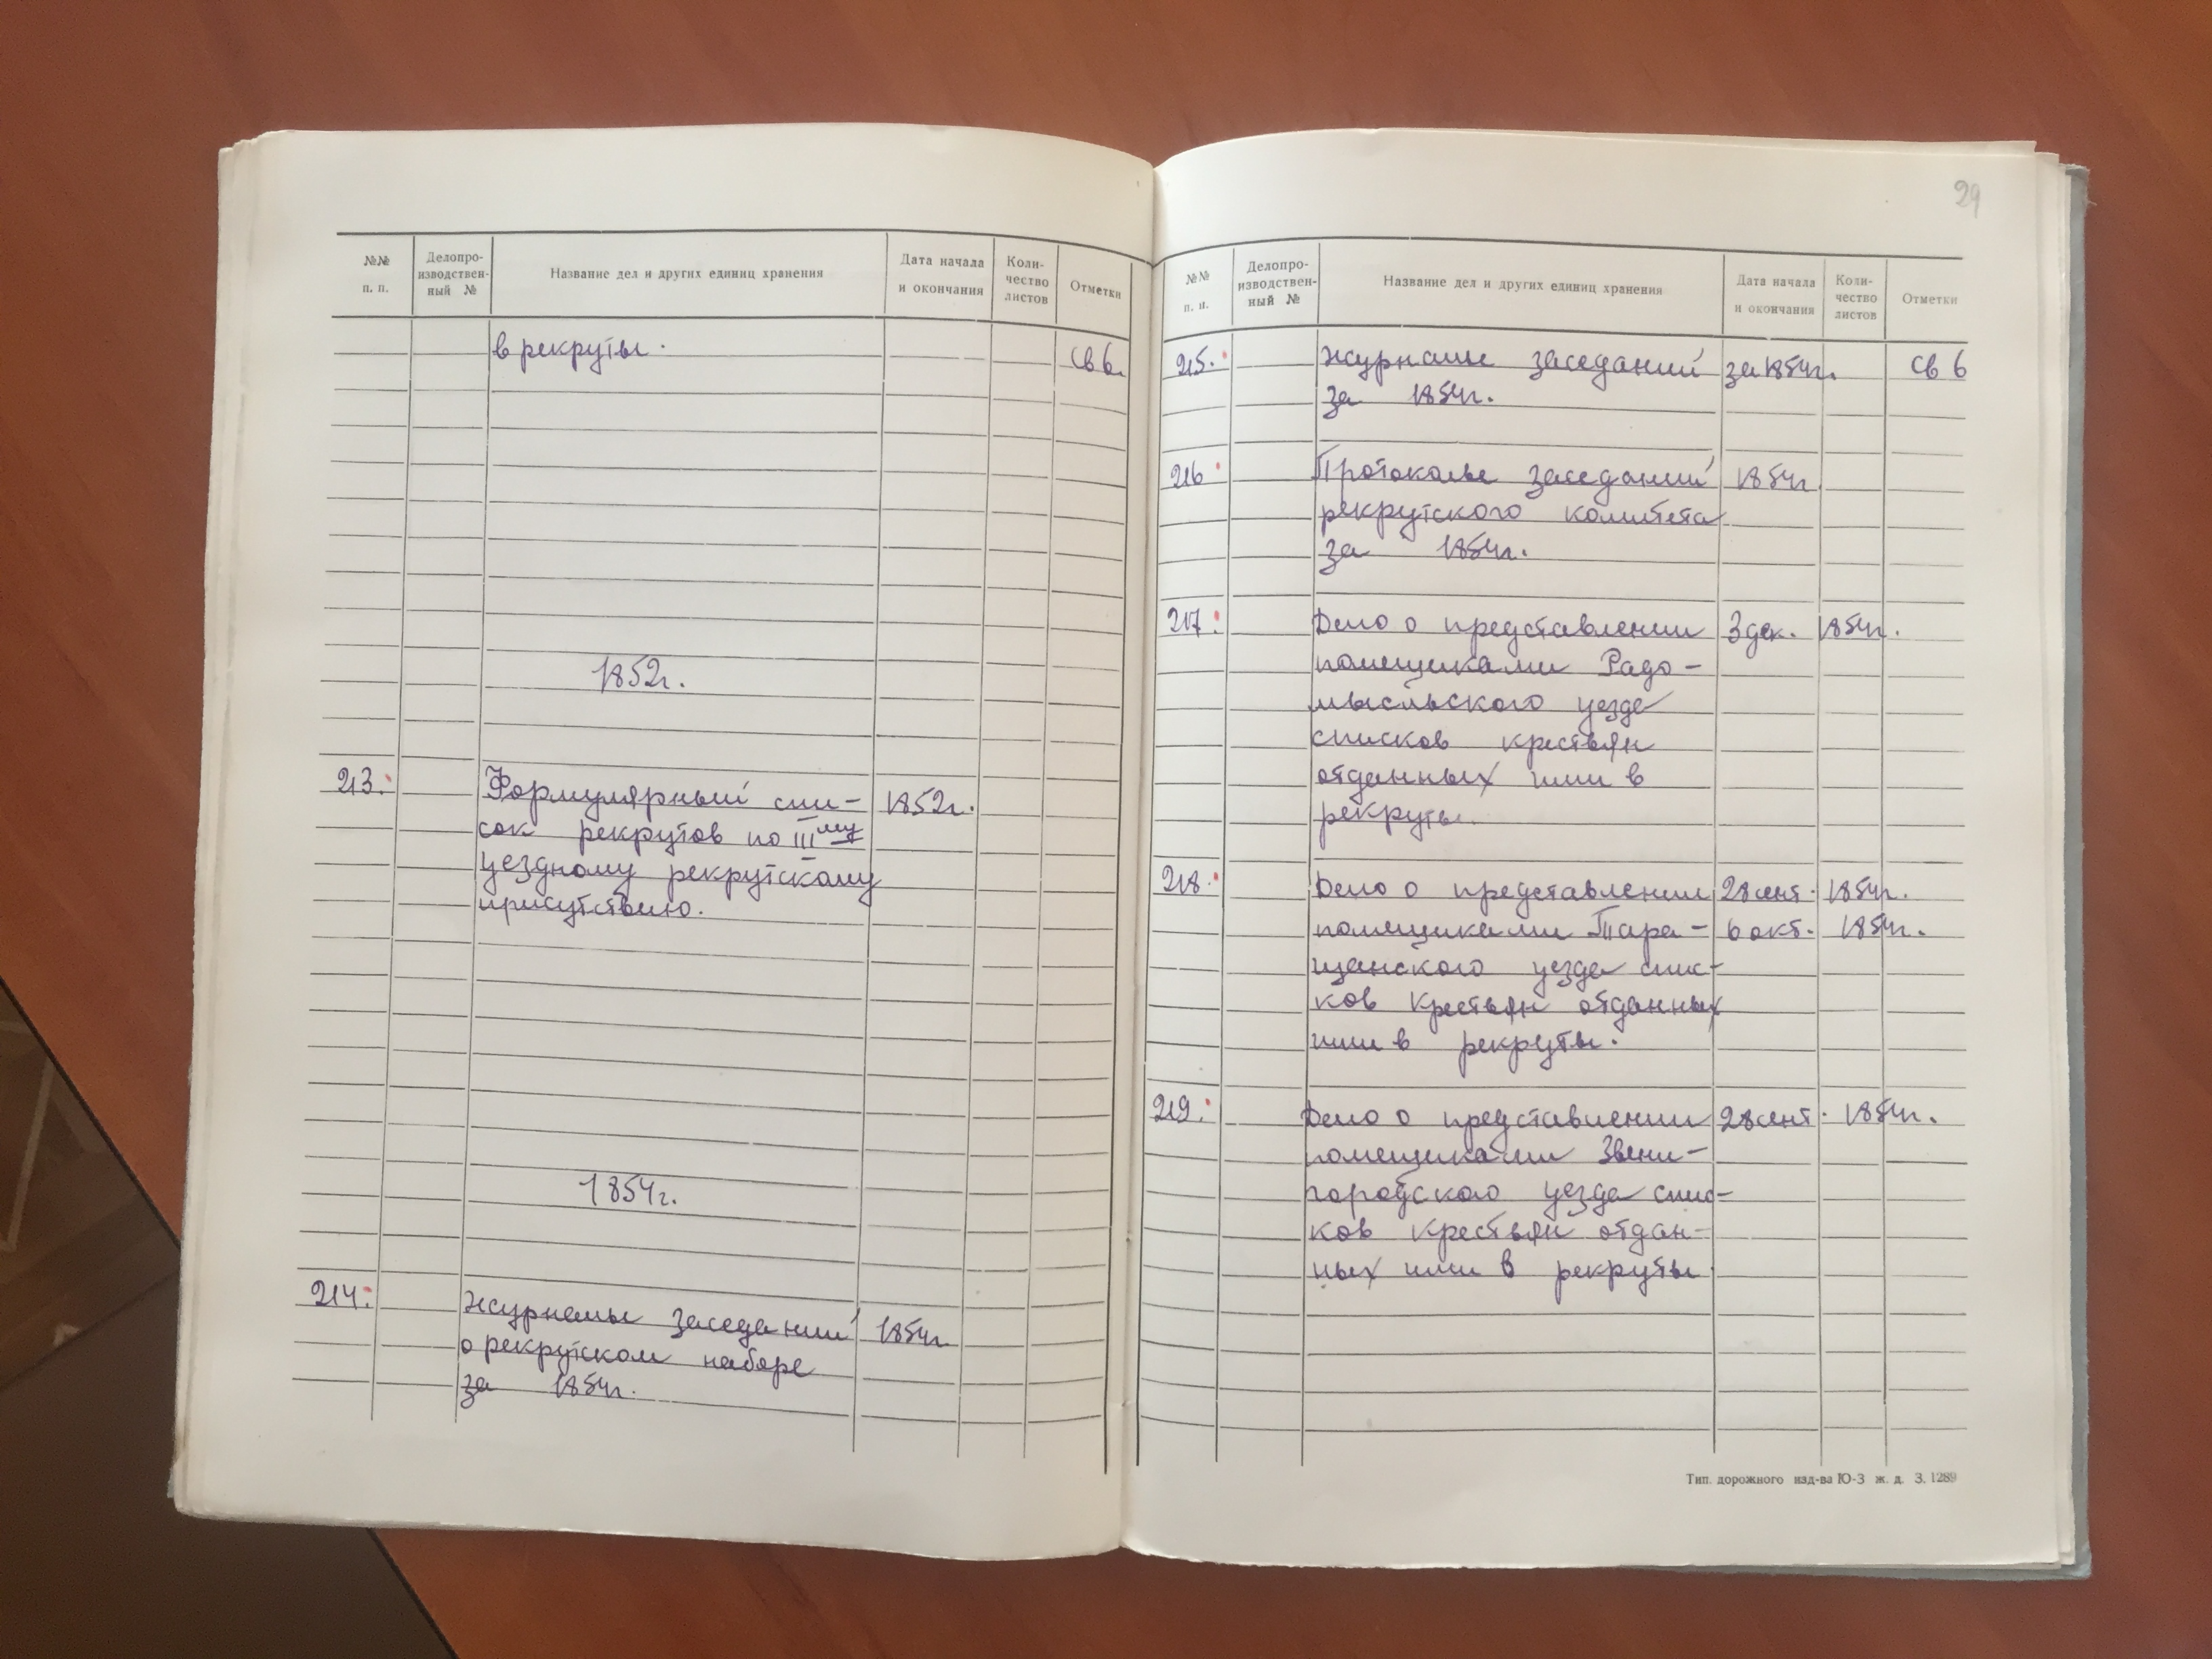 №№ п. п. Делопро-изводствен-ный № Название дел и других единиц хранения Дата начала и окончания Коли-чество листов Отметки
в рекруты. св 6.
1852г.
213. Формулярный спи- 1852г.
сок рекрутов по IIIму
уездному рекрутскому
присутствию.
1854г.
214. Журналы заседаний 1854г.
о рекрутском наборе
за 1854г.
29
№№ п. п. Делопро-изводствен-ный № Название дел и других единиц хранения Дата начала и окончания Коли-чество листов Отметки
215. Журналы заседаний за 1854г. св 6
за 1854г.
216 Протоколы заседаний 1854г
рекрутского комитета
за 1854г.
217. Дело о представлении 3 дек. 1854г.
помещиками Радо-
мысльского уезда
списков крестьян
отданных ими в
рекруты.
218. Дело о представлении 28 сент. 1854г.
помещиками Тара- 6 окт. 1854г.
щанского уезда спис-
ков крестьян отданных
ими в рекруты.
219. Дело о представлении 28 сент. 1854г.
помещиками Звени-
городского уезда спис-
ков крестьян отдан-
ных ими в рекруты
Тип. дорожного изд-ва Ю-З ж. д. З. 1289